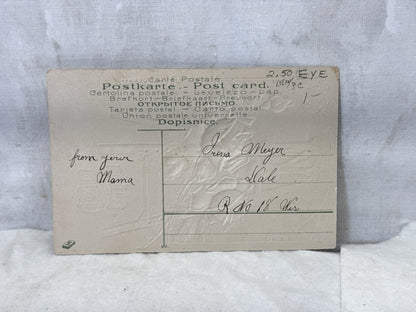 Carte Postale
Postkarte - Post card.
Cartolina postale - Levelezo-Lap
Brefkort-Briefkaart-Brevkort
ОТКРЫТОЕ ПИСЬМО.
Tarjeta postal - Carto postal
Union postale universelle
Dopisnice.
2.50 EYE
from your
Mama
Irena Meyer
Dale
R No 18 Wis